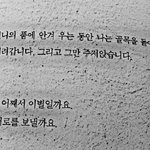 니의 품에 안겨 우는 동안 나는 골목을
려갑니다. 그리고 그만 주저앉습니다.
어째서 이별일까요.
로를 보낼까요.